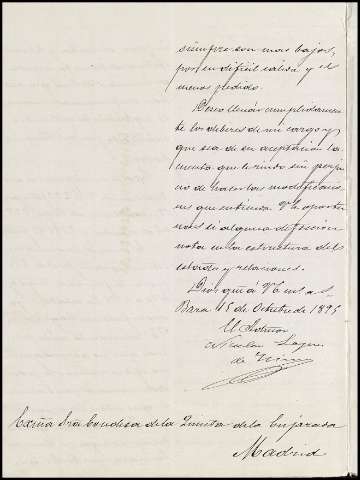 siempre son mas bajos,
por su dificil salida y el
menos pedido.
Deseo llenar cumplidamen
te los deberes de mi cargo y
que sea de su aceptacion la
cuenta que le rindo sin perjui
cio de hacer las modificacio
nes que entienda Vd. oportu
nas si alguna defiscion
nota en la estructura del
estado y relaciones.
Dios gue á Vd. m. a.
Baza 15 de Octubre de 1895
El Admor
Nicolas
de
Exma Sra Condesa de la Quinta de la Enjarada
Madrid